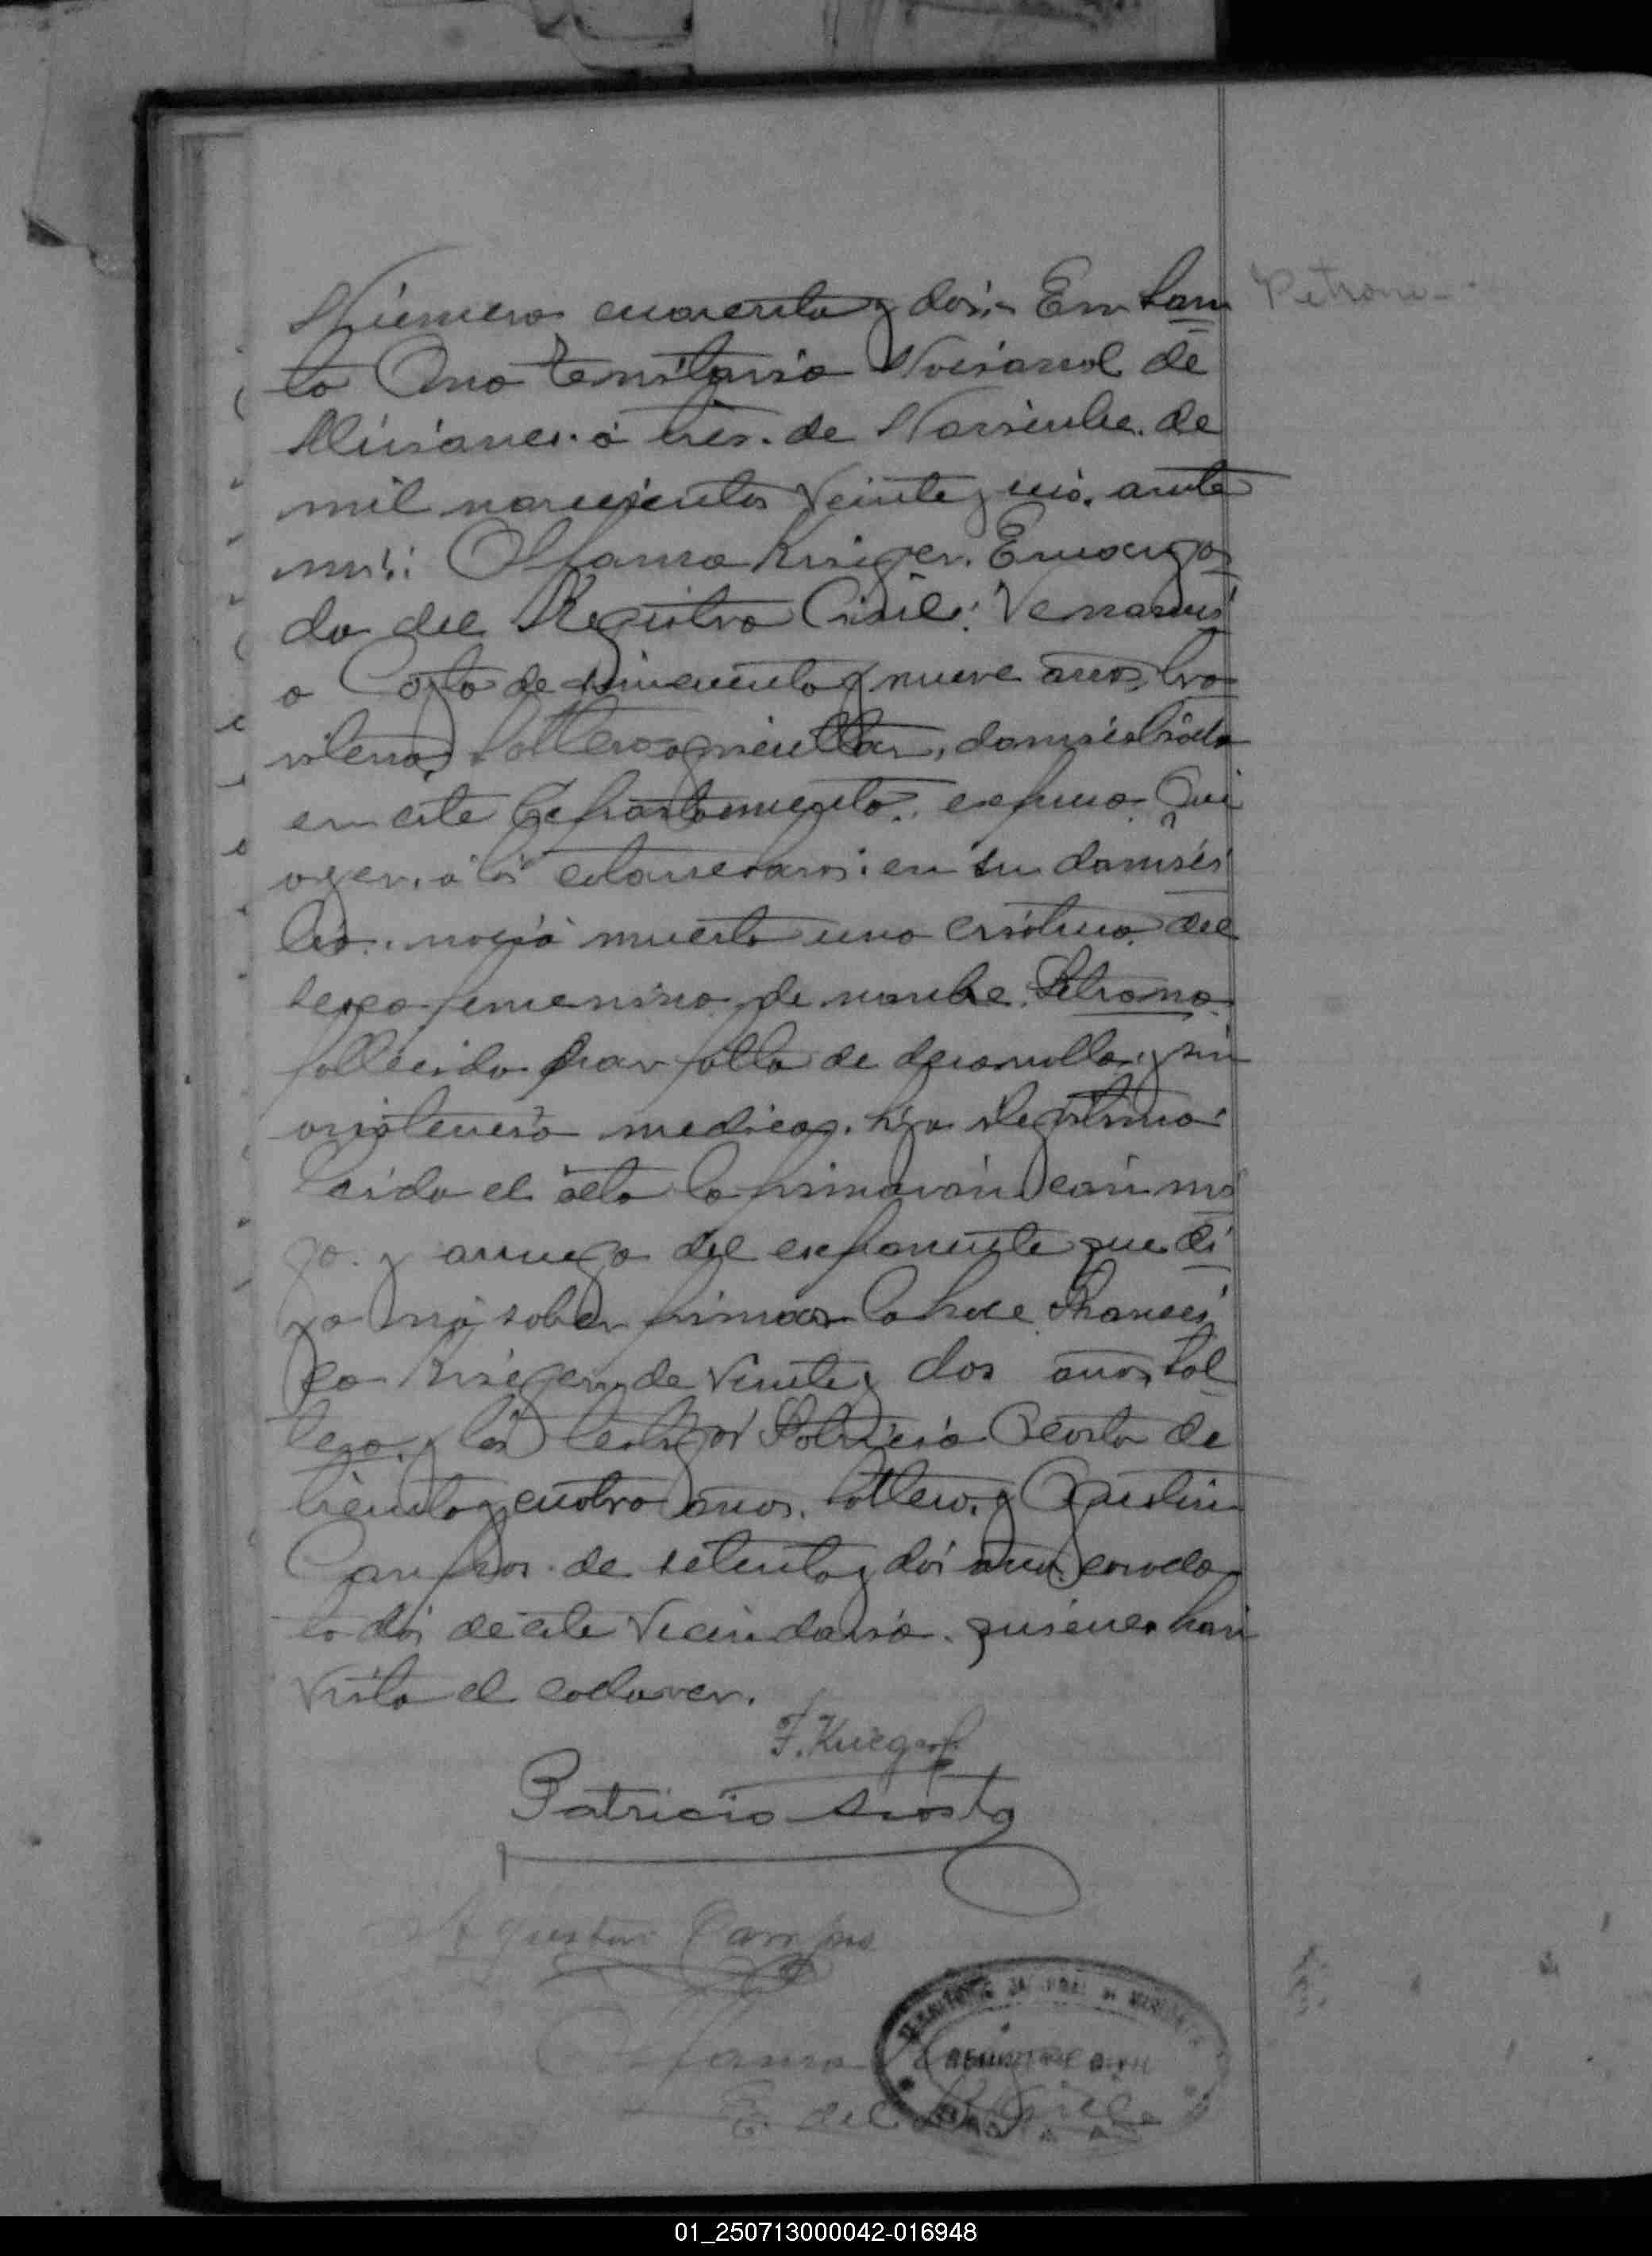 Número cuarenta y dos.- En San
Petrona
ta Ana territorio Nacional de
Misiones. á tres. de Noviembre. de
mil novecientos Veinte y uno. ante
mí: Krieger. Encarga
do del Registro Civil: Venanci
o Costa de cincuenta y nueve años, bra
silero, soltero agricultor, domiciliado
en este Departamento. expuso Que
ayer, á las en su domici
lio. nació muerta una criatura del
sexo femenino de nombre. Petrona
fallecida por falta de desarrollo y sin
asistencia medica, hija ilegitima
Leida el acta la firmaron conmi
go. y a ruego del exponente que di
jo no saber firmar lo hace Francis
co Krieger de Veinte y dos años, sol
tero. y los testigos Patricio Acosta de
treinta y cuatro años. soltero, y Agustin
Campos. de setenta y dos años casado
todos de este Vecindario. quienes han
visto el cadaver.
F. Krieger
Patricio Acosta
Agustin Campos
E. del R. Civil
TERRITORIO NACIONAL DE MISIONES
REGISTRO CIVIL
01_250713000042-016948